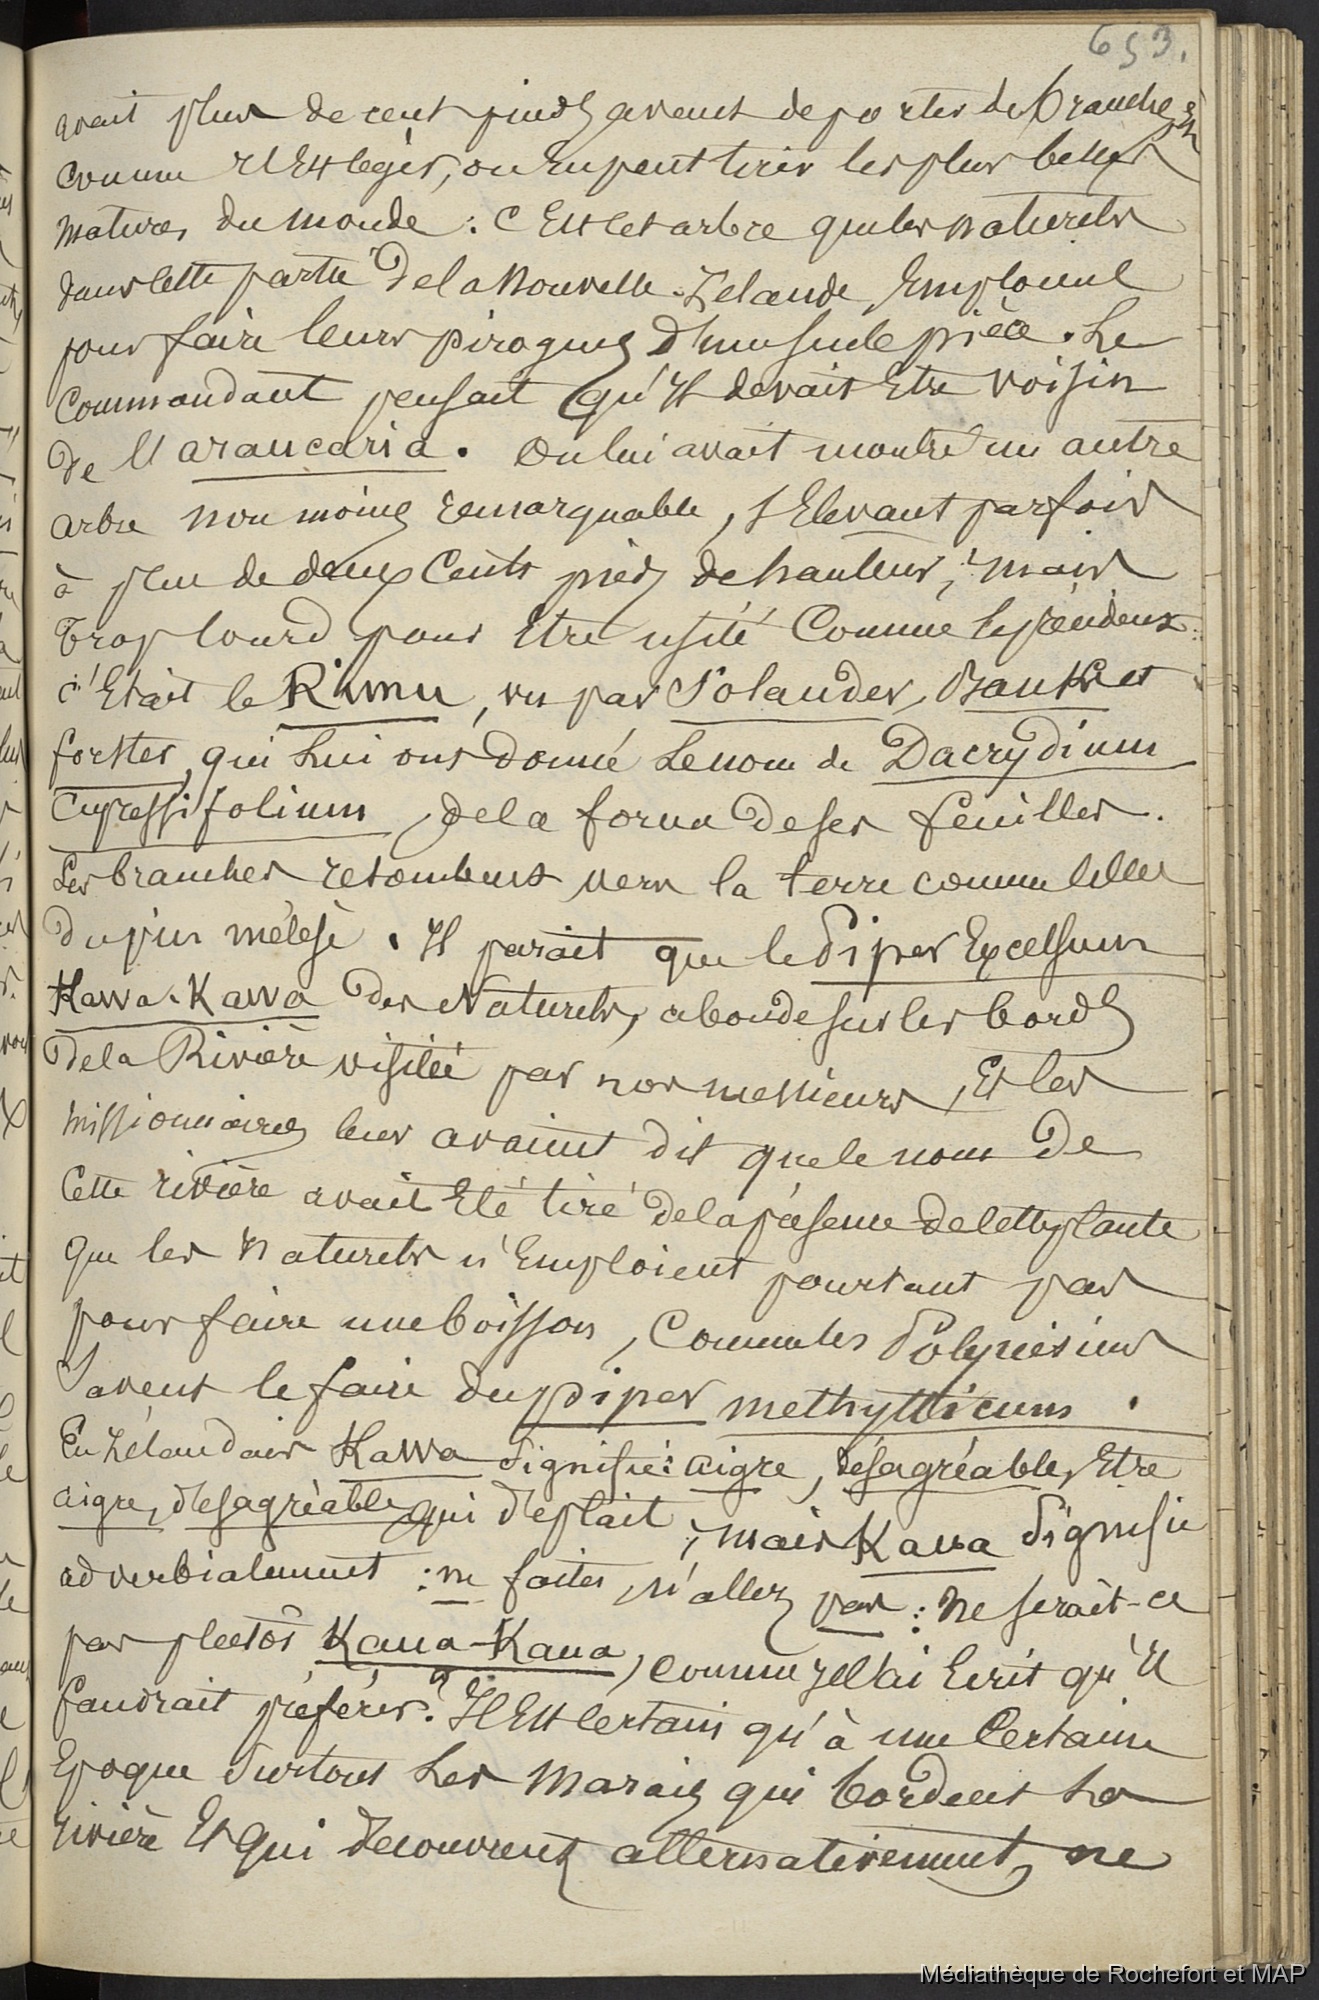 653.
avait plus de cent pieds avant de porter des branches et
comme il est léger, on en peut tirer les plus belles
matures du monde : c'est cet arbre que les naturels
dans cette partie de la Nouvelle-Zélande emploient
pour faire leurs pirogues d'une seule pièce. Le
Commandant pensait qu'il devait être voisin
de l'araucaria. On lui avait montré un autre
arbre non moins remarquable, s'élevant parfois
à plus de deux cents pieds de hauteur, mais
trop lourd pour être usité comme le précédent :
c'était le Rimu, vu par Solander, Banks et
forster, qui lui ont donné le nom de Dacrydium
Cupressifolium, de la forme de ses feuilles.
Les branches retombent vers la terre comme celles
du pin mélèse. Il parait que le Piper Excelsum
Kawa-Kawa des Naturels, abonde sur les bords
de la Rivière visitée par nos messieurs, et les
missionnaires leur avaient dit que le nom de
cette rivière avait été tiré de la présence de cette plante
que les naturels n'emploient pourtant pas
pour faire une boisson, comme les Polynésiens
savent le faire du piper methysticum.
En Zélandais Kawa signifie : aigre, désagréable, être
aigre, désagréable, qui déplait ; mais Kaua signifie
adverbialement : ne faites, n'allez pas : ne serait-ce
pas plutôt Kaua-Kaua, comme je l'ai écrit qu'il
faudrait préférer ? Il est certain qu'à une certaine
époque surtout les marais qui bordent la
rivière et qui découvrent alternativement, ne
Médiathèque de Rochefort et MAP